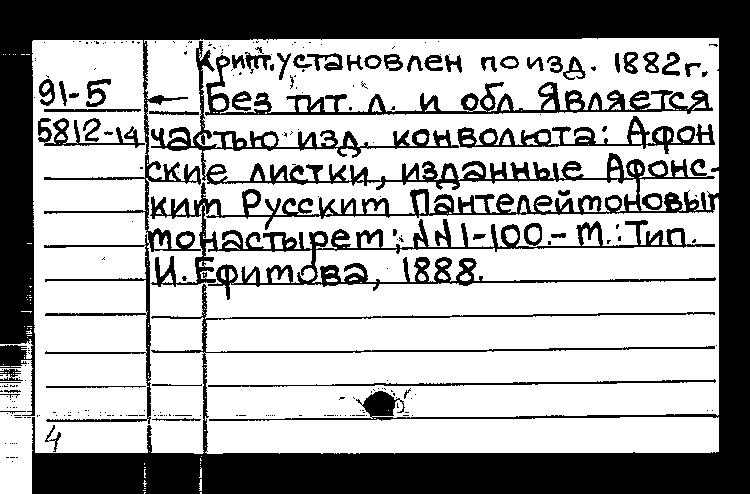 Крипт. установлен по изд. 1882 г.
91-5 ← Без тит. л. и обл. Является
5812-14 частью изд. конволюта: Афон
ские листки, изданные Афонс-
ким Русским Пантелеймоновым
монастырем; NN 1-100.- М.: Тип.
И. Ефимова, 1888.
4